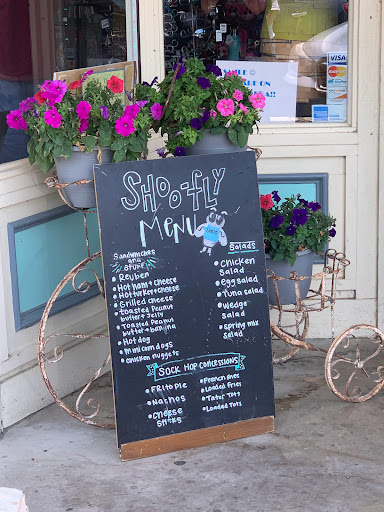 SHOO-FLY
MENU
Sandwiches
and
Stuff
• Reuben
• Hot ham + cheese
• Hot turkey + cheese
• Grilled cheese
• toasted Peanut
butter + Jelly
• Toasted Peanut
butter + banana
• Hot dog
• Mini corn dogs
• chicken nuggets
Salads
• Chicken
Salad
• Egg salad
• Tuna salad
• Wedge
Salad
• Spring mix
Salad
SOCK HOP CONCESSIONS
• Frito Pie
• Nachos
• Cheese
Sticks
• French Fries
• Loaded Fries
• Tater Tots
• Loaded Tots
VISA
MasterCard